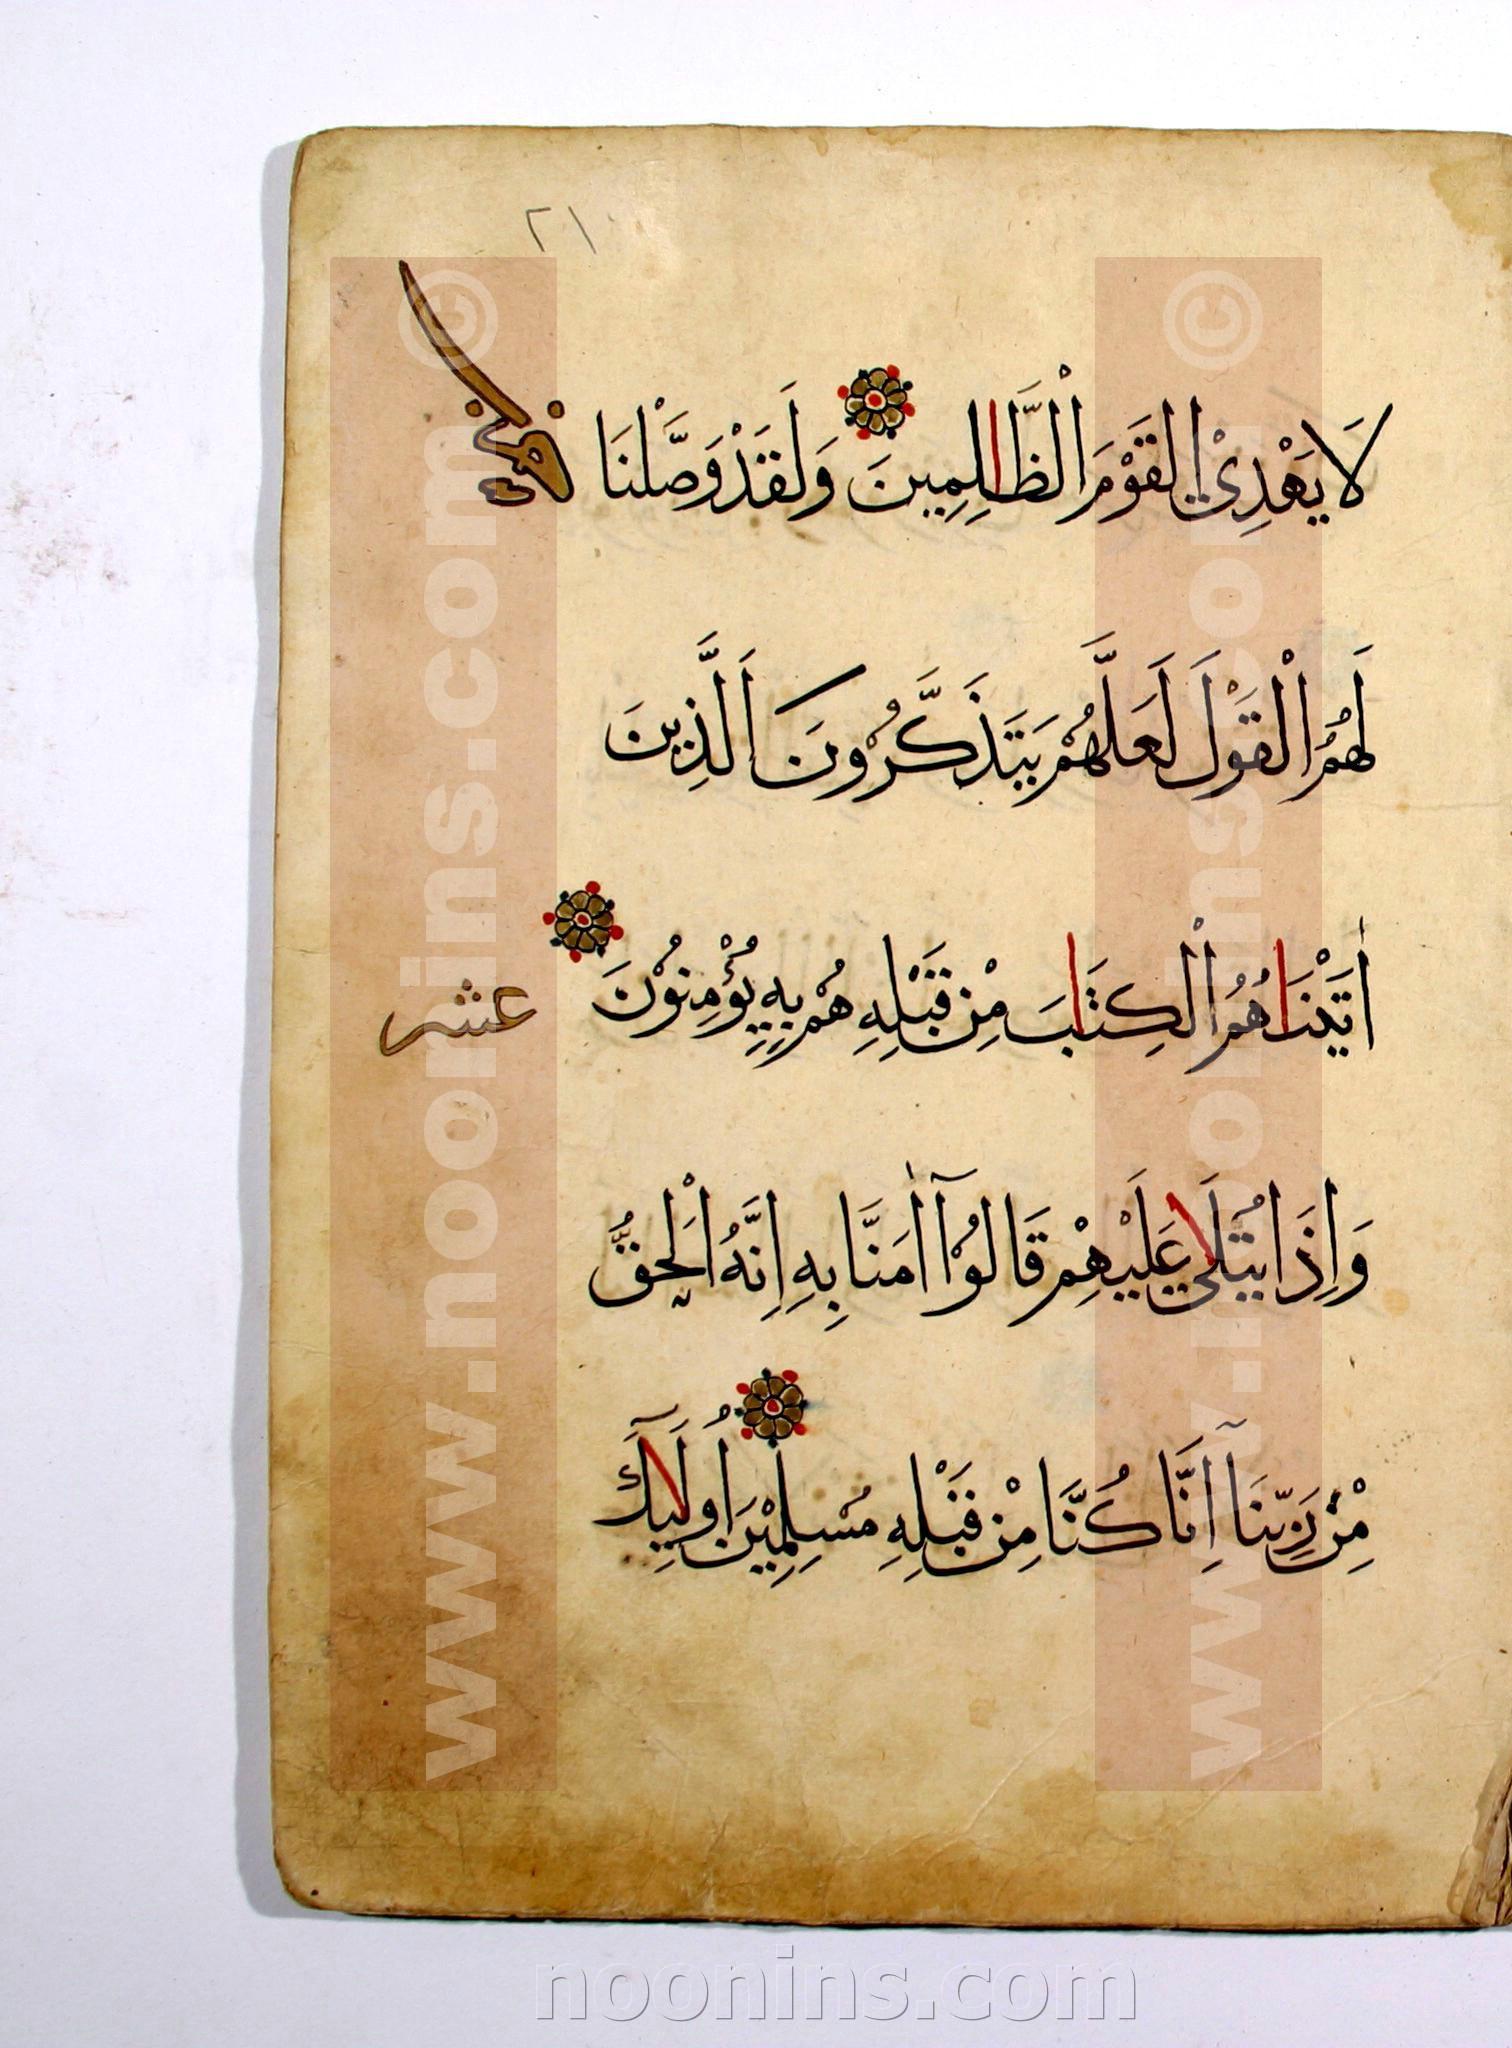 ٢١
لَا يَهْدِىْ الْقَوْمَ الْظَّالِمِينَ وَلَقَدْ وَصَّلْنَا
لَهُمُ الْقَوْلَ لَعَلَّهُمْ يَتَذَكَّرُونَ اَلَّذِينَ
اٰتَيْنَاهُمُ الْكِتَابَ مِنْ قَبْلِهِ هُمْ بِهِ يُؤْمِنُوْنَ
عشر
وَاِذَا يُتْلَى عَلَيْهِمْ قَالُوْآ اٰمَنَّا بِهِ اِنَّهُ الْحَقُّ
مِنْ رَبِّنَآ اِنَّا كُنَّا مِنْ قَبْلِهِ مُسْلِمِيْنَ اُولَآئِكَ
www.noonins.com ©
www.noonins.com ©
noonins.com